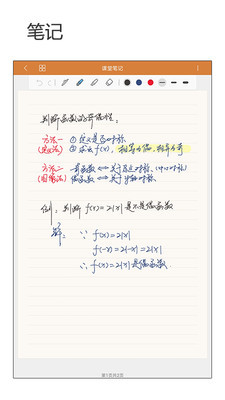 笔记
课堂笔记
判断函数的奇偶性:
方法一 ① 定义是否对称
(定义法) ② 求出f(x), 相等为偶, 相反为奇
方法二 奇函数 ⟷ 关于原点对称, (中心对称)
(图像法) 偶函数 ⟷ 关于y轴对称
例: 判断 f(x)=2|x| 是不是偶函数
解: ∵ f(x)=2|x|
f(-x)=2|-x|=2|x|
∴ f(x)=2|x| 是偶函数.
第1页共2页